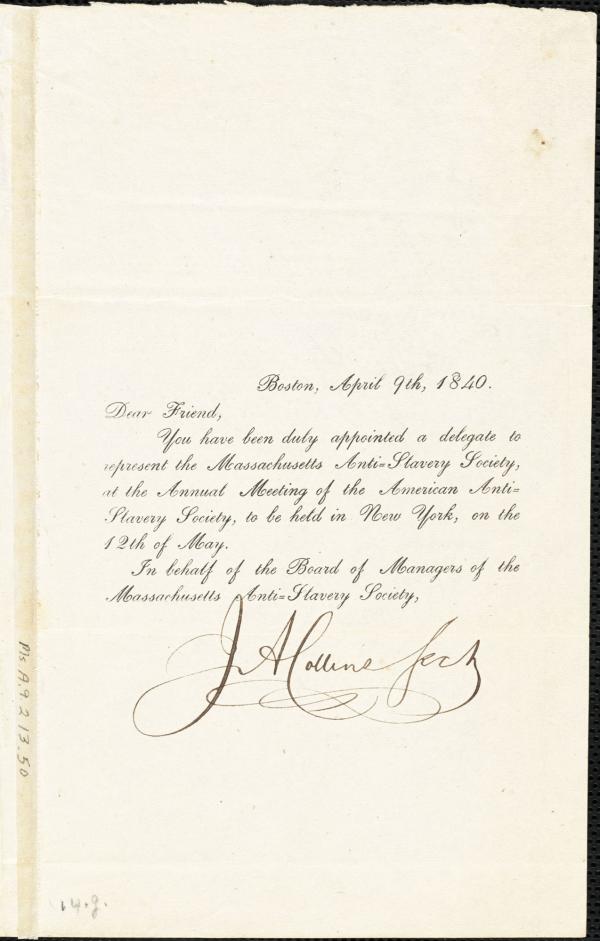 Boston, April 9th, 1840.
Dear Friend,
You have been duly appointed a delegate to
represent the Massachusetts Anti=Slavery Society,
at the Annual Meeting of the American Anti=
Slavery Society, to be held in New York, on the
12th of May.
In behalf of the Board of Managers of the
Massachusetts Anti=Slavery Society,
J A Collins Sect
Ms. A.9.2.13.50
14.g.